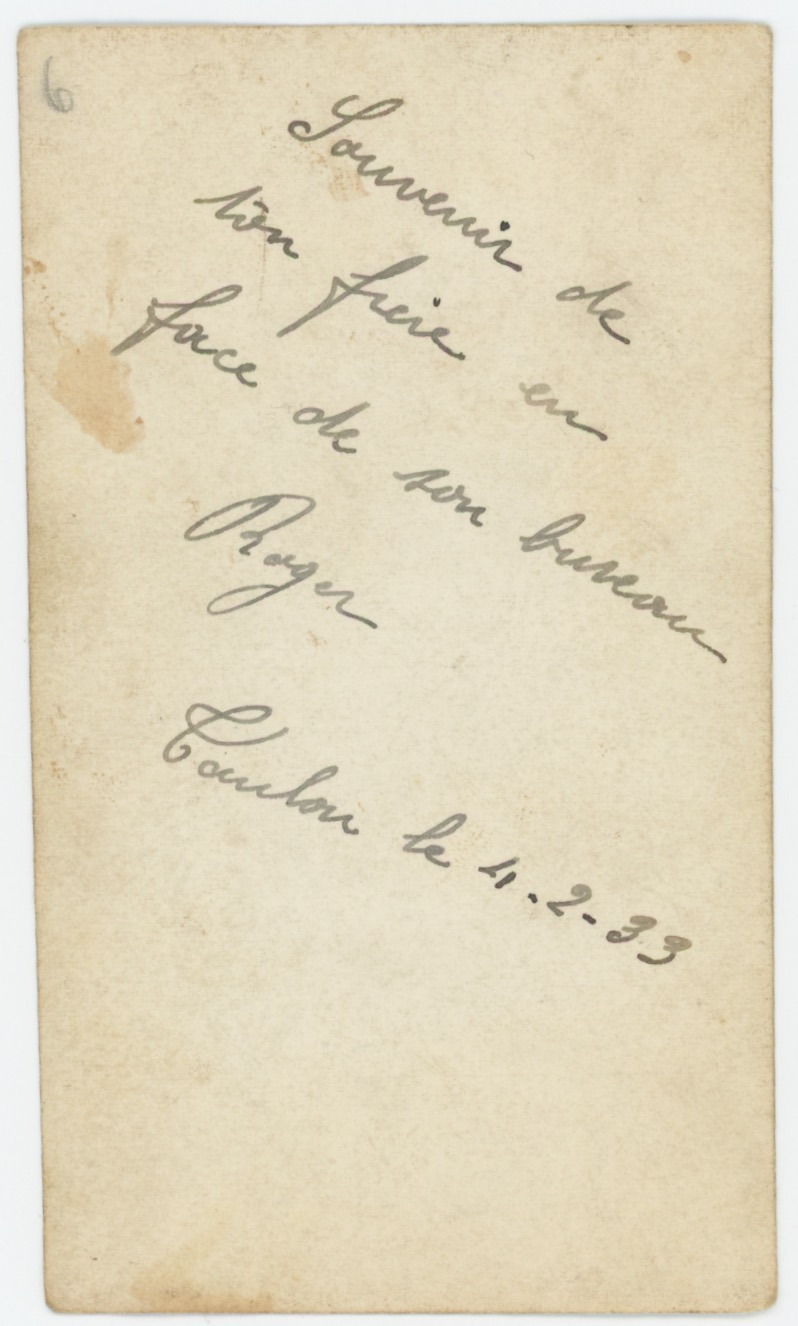 6
Souvenir de
ton frère en
face de son bureau
Roger
Toulon le 4.2-33